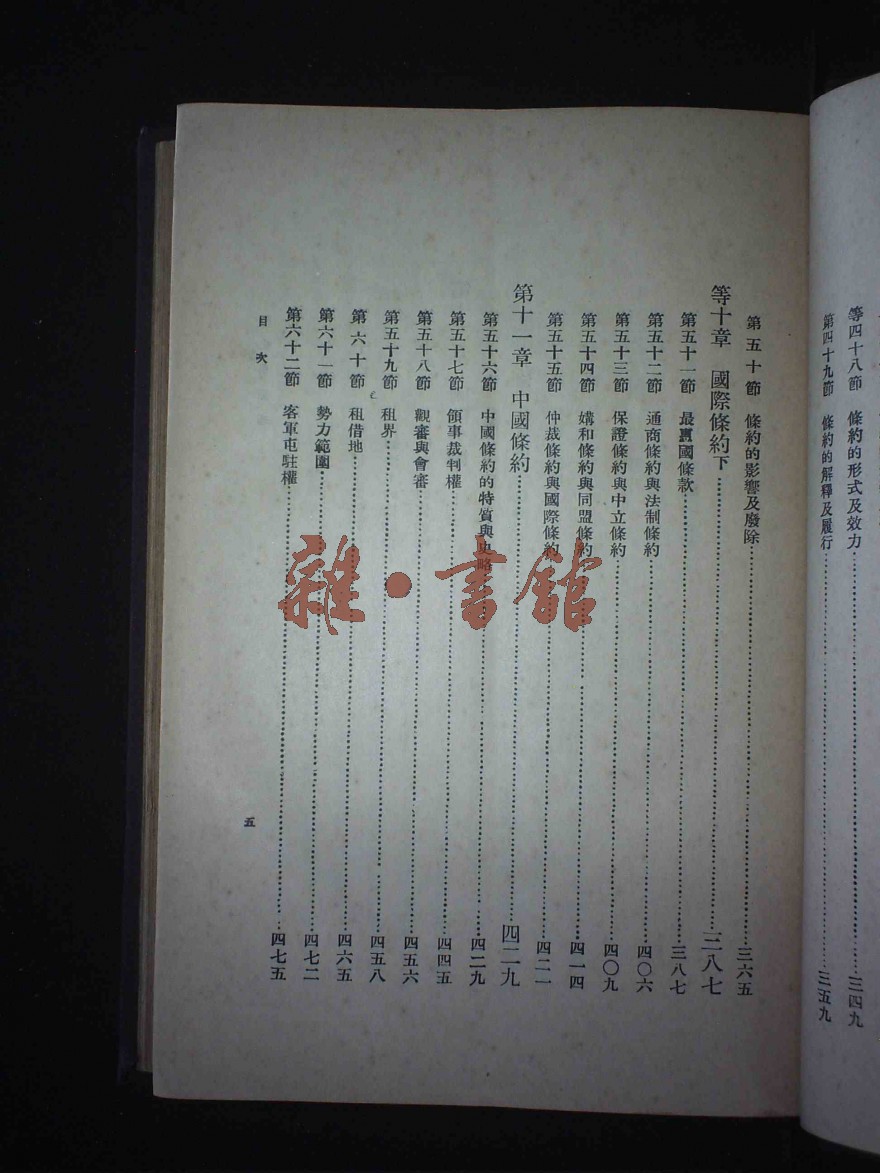 等四十八節 條約的形式及效力 三四九
第四十九節 條約的解釋及履行 三五九
第五十節 條約的影響及廢除 三六五
等十章 國際條約下 三八七
第五十一節 最惠國條款 三八七
第五十二節 通商條約與法制條約 四〇六
第五十三節 保證條約與中立條約 四〇九
第五十四節 媾和條約與同盟條約 四一四
第五十五節 仲裁條約與國際條約 四二一
第十一章 中國條約 四二九
第五十六節 中國條約的特質與史略 四二九
第五十七節 領事裁判權 四四五
第五十八節 觀審與會審 四五六
第五十九節 租界 四五八
第六十節 租借地 四六五
第六十一節 勢力範圍 四七二
第六十二節 客軍屯駐權 四七五
目次
五
雜·書館